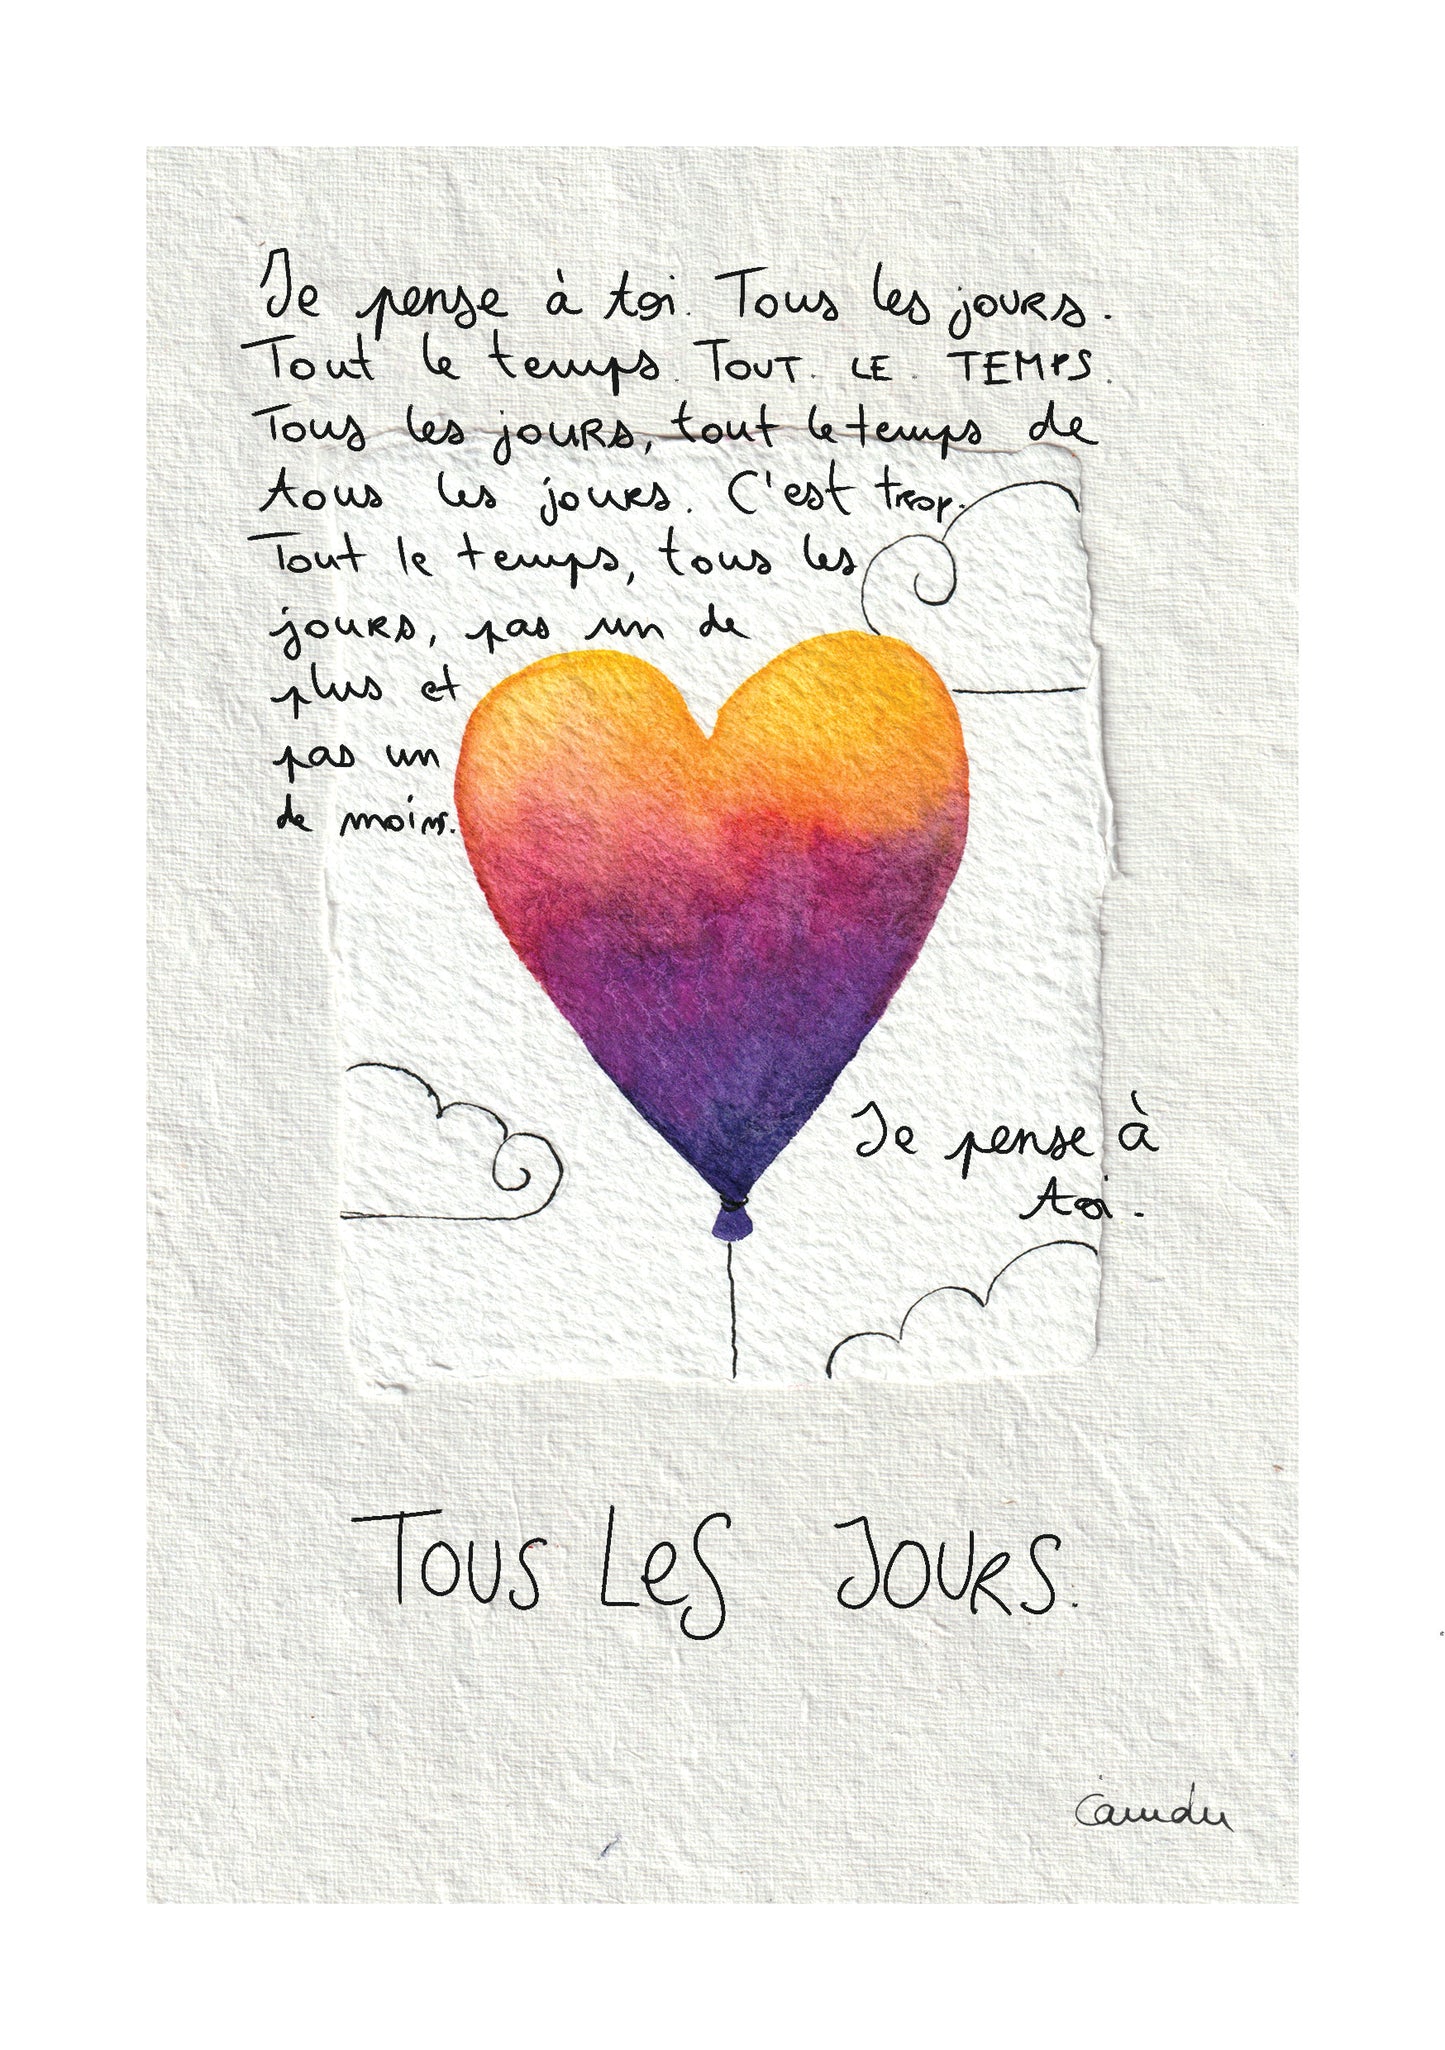 Je pense à toi. Tous les jours.
Tout le temps. TOUT. LE. TEMPS.
Tous les jours, tout le temps de
tous les jours. C'est trop.
Tout le temps, tous les
jours, pas un de
plus et
pas un
de moins.
Je pense à
toi.
TOUS LES JOURS.